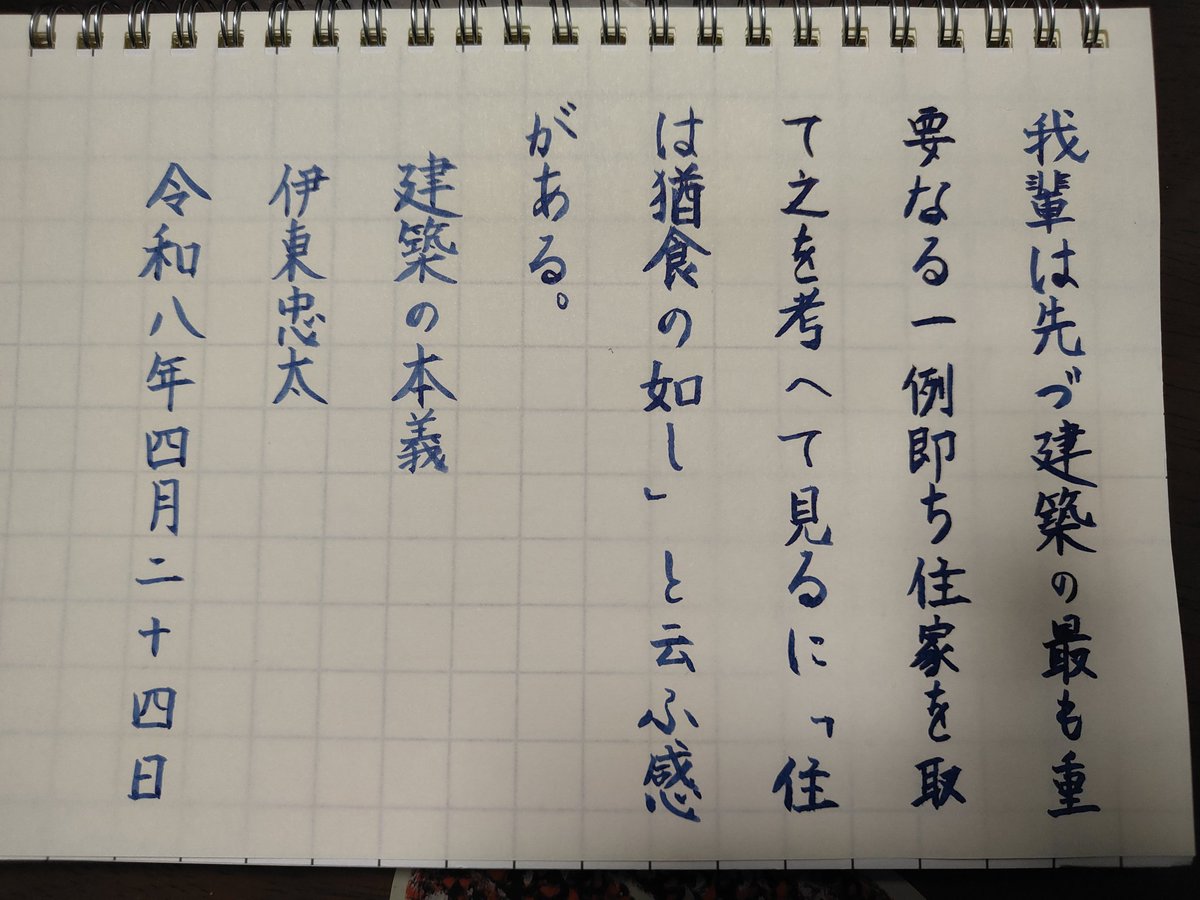 我輩は先づ建築の最も重
要なる一例即ち住家を取
て之を考へて見るに「住
は猶食の如し」と云ふ感
がある。
建築の本義
伊東忠太
令和八年四月二十四日